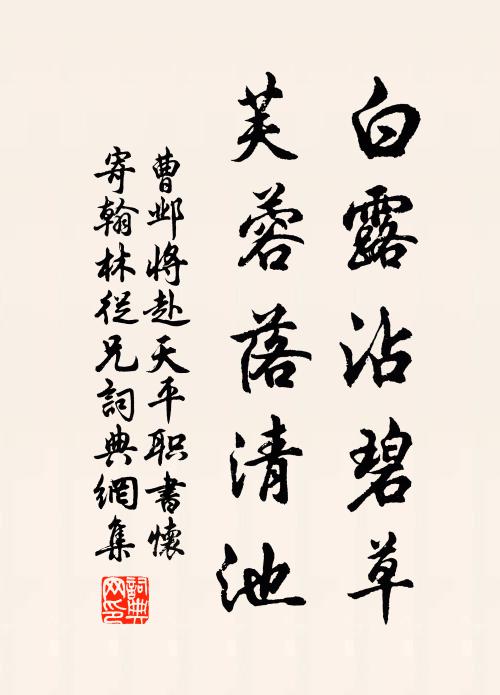 白露沾碧草
芙蓉落清池
曹邺将赴天平职書懷
寄翰林從兄詞典網集
詞典
网印